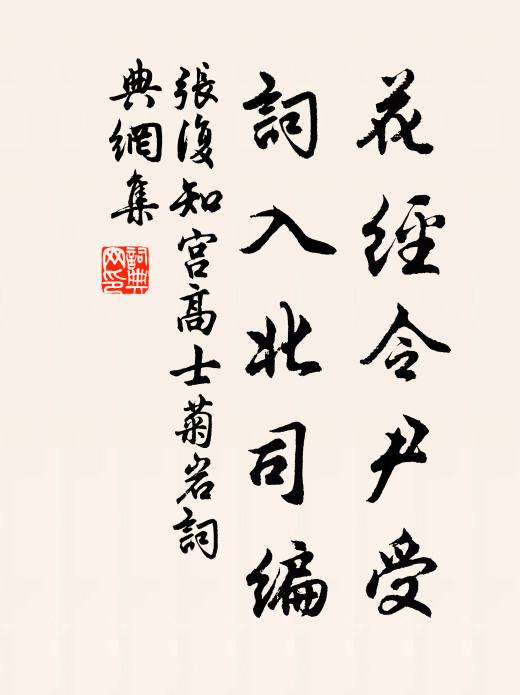 花經令尹受
詞入北司編
張復知宮高士菊岩詞
典網集
詞典網印